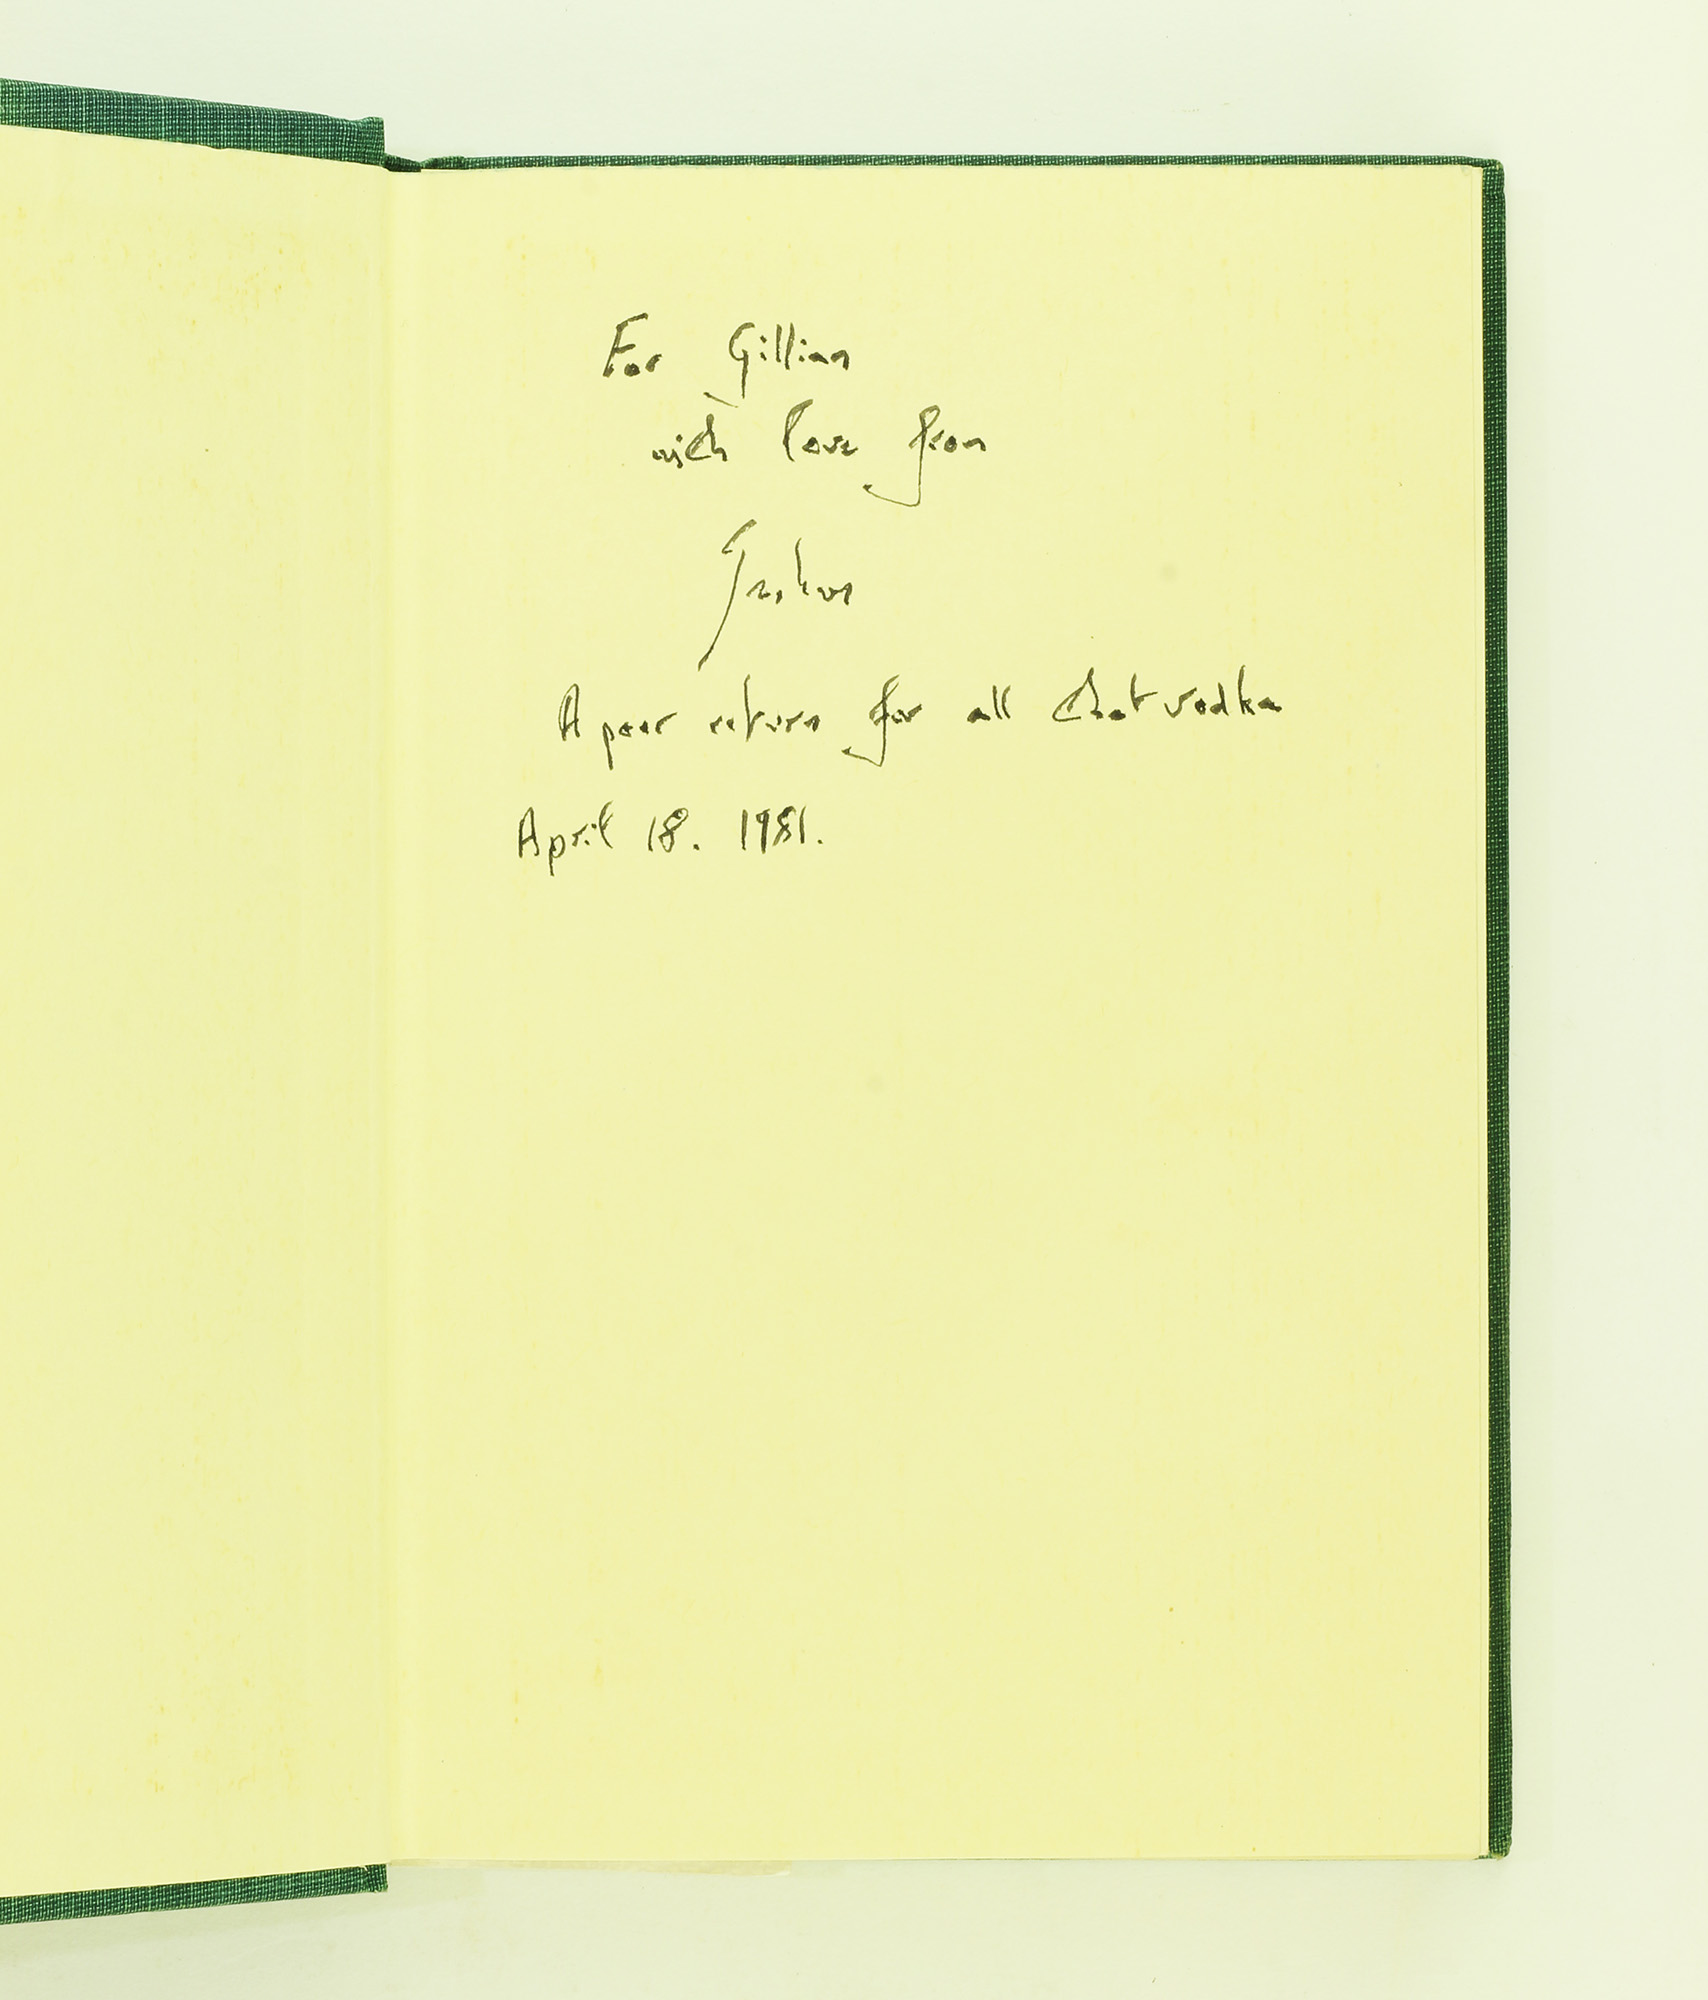 For Gillian
with love from
Graham
A poor return for all that vodka
April 18. 1981.